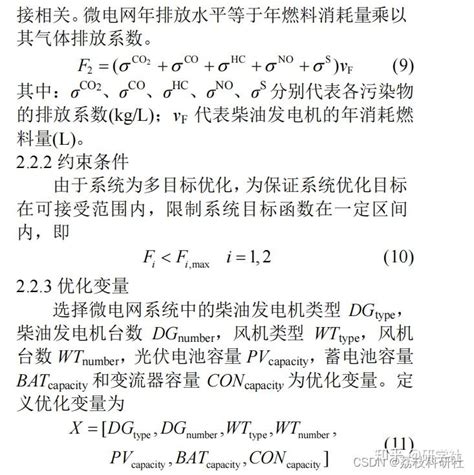 接相关。微电网年排放水平等于年燃料消耗量乘以
其气体排放系数。
F₂ = (σ^CO₂ + σ^CO + σ^HC + σ^NO + σ^S)v_F (9)
其中: σ^CO₂、σ^CO、σ^HC、σ^NO、σ^S 分别代表各污染物
的排放系数(kg/L); v_F 代表柴油发电机的年消耗燃
料量(L)。
2.2.2 约束条件
由于系统为多目标优化,为保证系统优化目标
在可接受范围内,限制系统目标函数在一定区间
内,即
F_i < F_i,max i = 1,2 (10)
2.2.3 优化变量
选择微电网系统中的柴油发电机类型 DG_type,
柴油发电机台数 DG_number,风机类型 WT_type,风机
台数 WT_number,光伏电池容量 PV_capacity,蓄电池容量
BAT_capacity 和变流器容量 CON_capacity 为优化变量。定
义优化变量为
X = [DG_type, DG_number, WT_type, WT_number,
PV_capacity, BAT_capacity, CON_capacity] (11)
CSDN @荔枝科研社